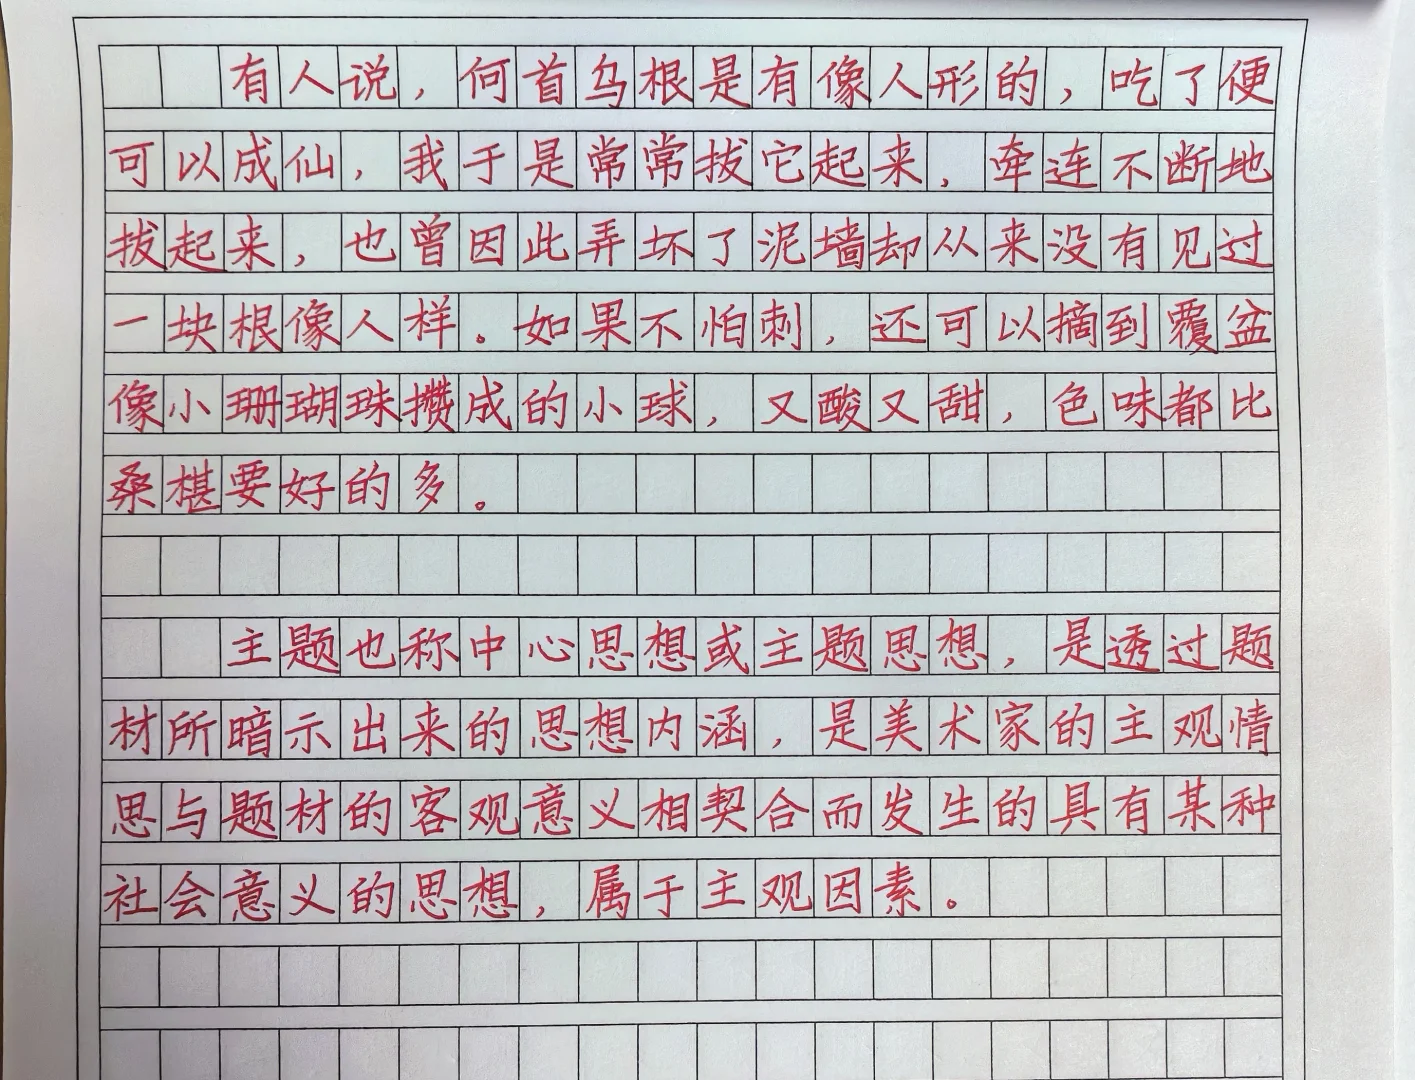 有人说，何首乌根是有像人形的，吃了便
可以成仙，我于是常常拔它起来，牵连不断地
拔起来，也曾因此弄坏了泥墙却从来没有见过
一块根像人样。如果不怕刺，还可以摘到覆盆
像小珊瑚珠攒成的小球，又酸又甜，色味都比
桑椹要好的多。
主题也称中心思想或主题思想，是透过题
材所暗示出来的思想内涵，是美术家的主观情
思与题材的客观意义相契合而发生的具有某种
社会意义的思想，属于主观因素。